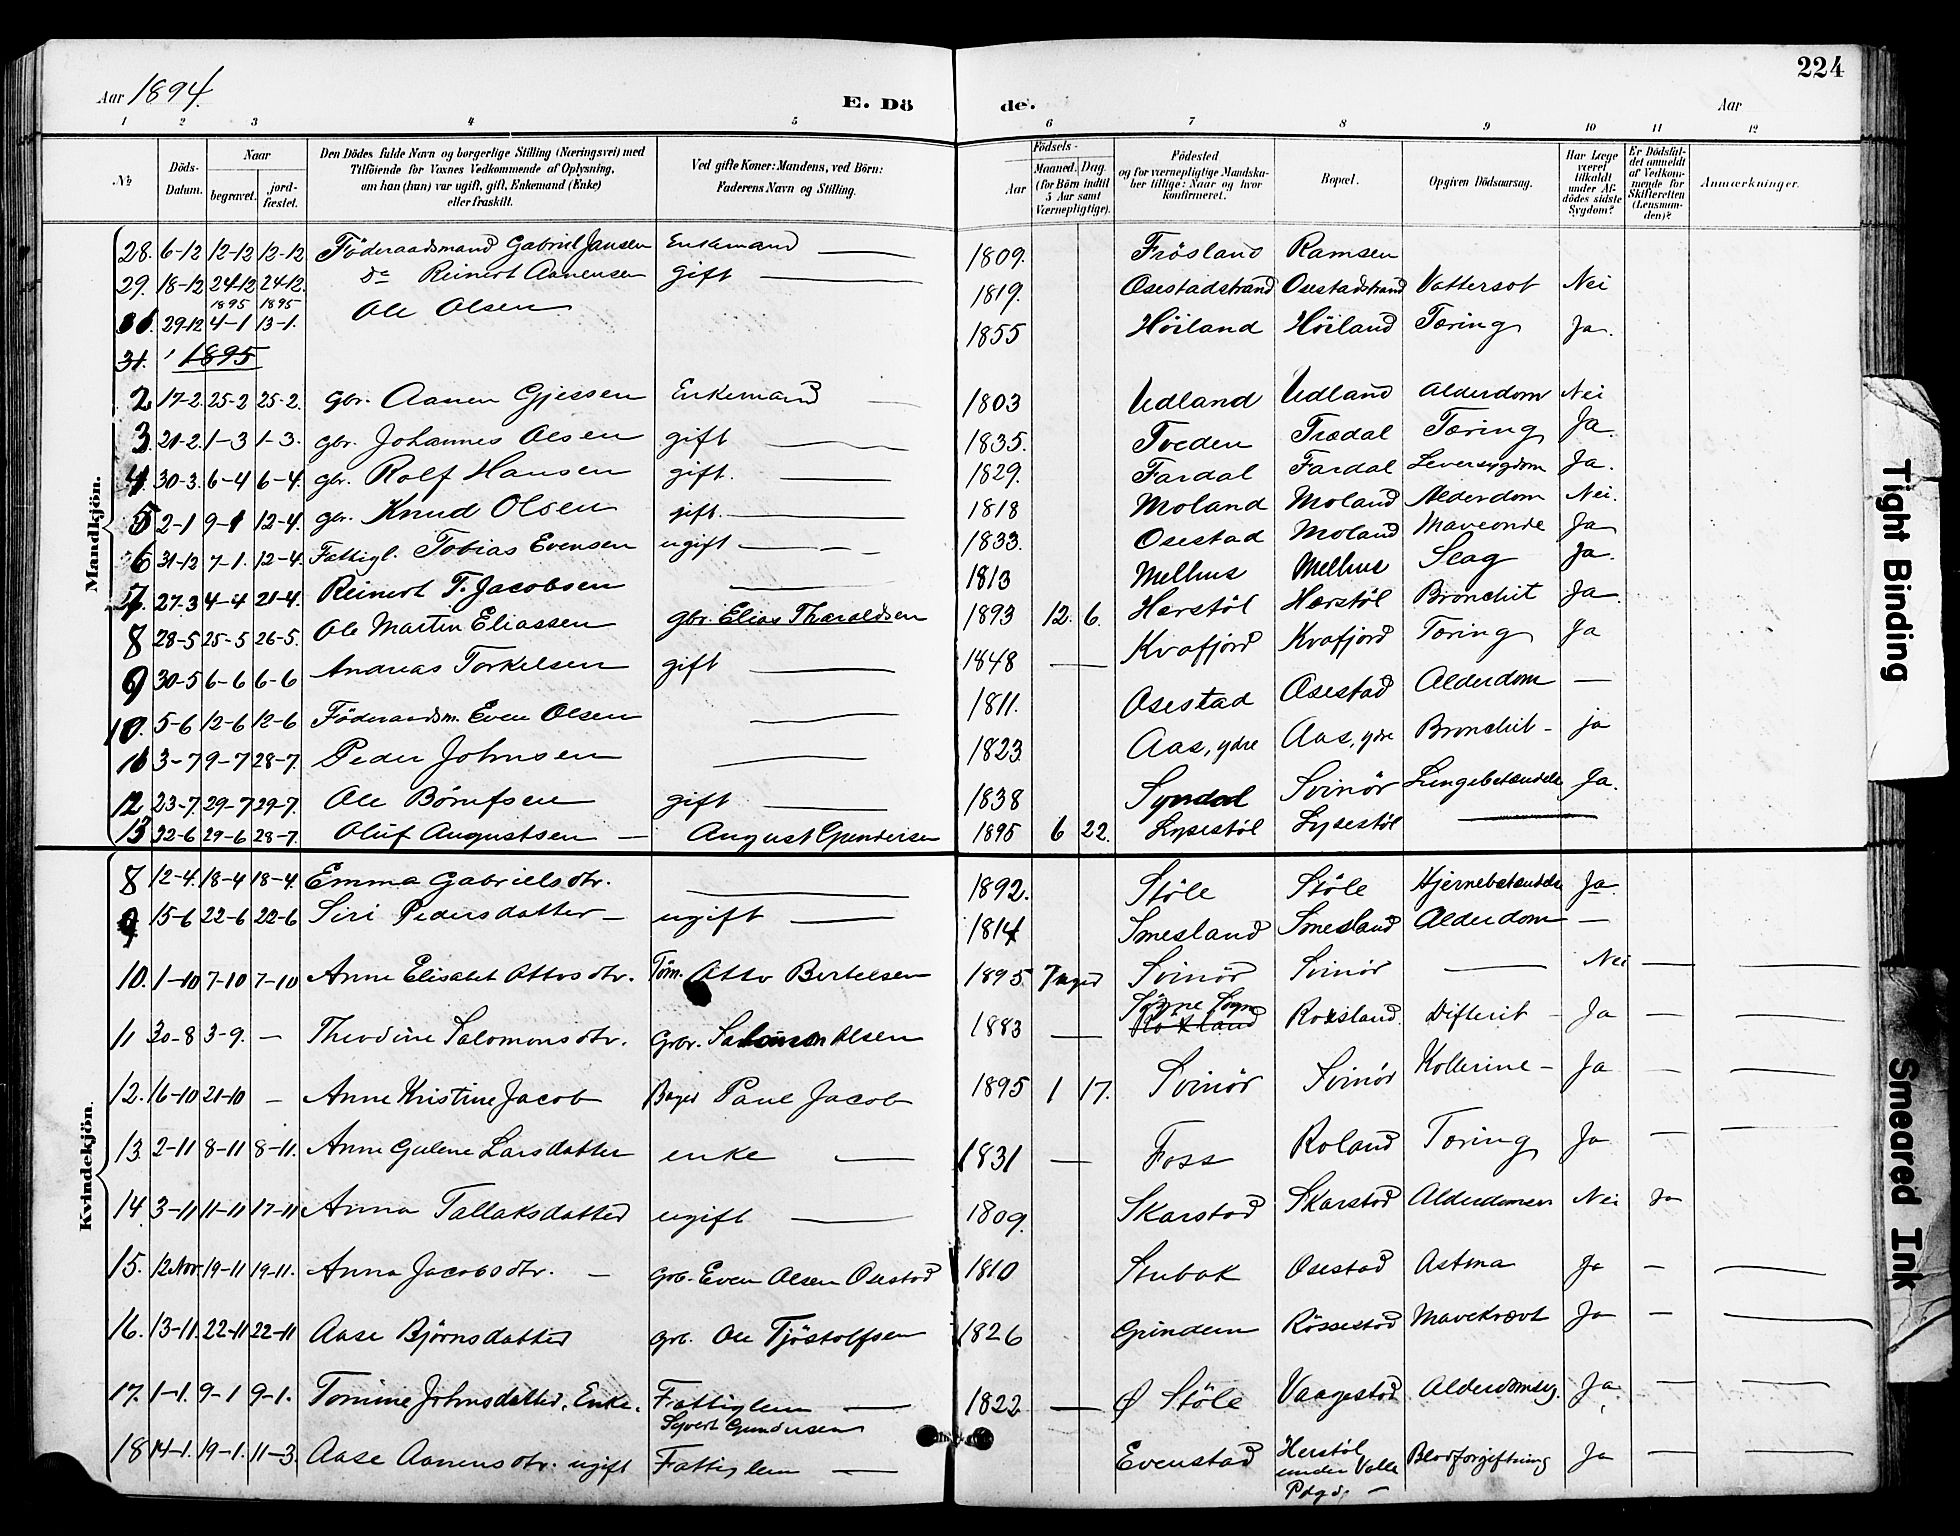 224
Aar 1894. E. Dö de. Aar
1 2 3 4 5 6 7 8 9 10 11 12
№ Döds-Datum. Naar begravet. jordfæstet. Den Dödes fulde Navn og borgerlige Stilling (Næringsvei) med Tilföiende for Voxnes Vedkommende af Oplysning, om han (hun) var ugift, gift, Enkemand (Enke) eller fraskilt. Ved gifte Koner: Mandens, ved Börn: Faderens Navn og Stilling. Födsels- Aar Maaned. Dag. (for Börn indtil 5 Aar samt Værnepligtige). Födested og for værnepligtige Mandskaber tillige: Naar og hvor konfirmeret. Bopæl. Opgiven Dödsaarsag. Har Læge været tilkaldt under Afdödes sidste Sygdom? Er Dödsfaldet anmeldt af Vedkommende for Skifteretten (Lensmanden)? Anmærkninger.
Mandkjön.
28. 6-12 12-12 12-12 Föderaadsmand Gabriel Jansen Enkemand — 1809. Frösland Ramsen
29. 18-12 24-12 24-12 do Reinert Aanensen gift — 1819. Osestadstrand Osestadstrand Vattersot Nei
1895 1895
29-12 4-1 13-1. Ole Olsen 1855 Höiland Höiland Tæring Ja.
31. 1895
2 17-2 25-2 25-2. gbr. Aanen Gjessen Enkemand — 1803 Udland Udland Alderdom Nei
3 21-2. 1-3 1-3. gbr. Johannes Olsen gift — 1835. Tveden Trædal Tæring Ja.
4 30-3. 6-4 6-4. gbr. Rolf Hansen gift. — 1829. Fardal Fardal Leversygdom Ja.
5 2-1 9-1 12-4. gbr. Knud Olsen gift. — 1818 Moland Moland Alderdom Nei.
6 31-12 7-1. 12-4. Fattigl. Tobias Evensen ugift — 1833. Osestad Moland Maveonde Ja
7 27-3 4-4 21-4. Reinert T. Jacobsen — 1813 Melhus Melhus Slag Ja.
8 28-5 25-5 26-5. Ole Martin Eliassen gbr. Elias Tharaldsen 1893 12. 6. Hærstöl Hærstöl Bronchit Ja.
9 30-5 6-6 6-6 Andreas Torkelsen gift — 1848 — Kvafjord Kvafjord Tæring Ja
10. 5-6 12-6 12-6 Föderaadsm. Even Olsen — 1811. Osestad Osestad Alderdom —
11 3-7 9-7 28-7. Peder Johnsen — 1823 Aas, ydre Aas, ydre Bronchit - ja
12 23-7. 29-7 29-7. Ole Börufsen gift — 1838 Syrdal Svinör Lungebetændelse Ja.
13 22-6 29-6 28-7. Oluf Augustsen — August Gundersen 1895 6 22. Lysestöl Lysestöl —
Kvindekjön.
8 12-4. 18-4 18-4. Emma Gabrielsdtr. — 1892. Stöle Stöle Hjernebetændelse Ja.
9 15-6 22-6 22-6 Siri Pedersdatter — ugift — 1814 Smesland Smesland Alderdom —
10. 1-10 7-10 7-10 Anne Elisabet Ottosdtr. Töm. Otto Bertelsen 1895. 7 Svinör Svinör — Nei — —
11 30-8 3-9. — Theodine Salomonsdtr. Gbr. Salomon Olsen 1883 — Söpne Sogn Roxland Roxland. Difterit - Ja — —
12. 16-10 21-10 — Anne Kristine Jacob Bager Paul Jacob 1895 1 17. Svinör Svinör Kollerine - Ja — —
13 2-11 8-11 8-11. Anne Gulene Larsdatter enke — 1831 — Foss Roland Tæring Ja — —
14. 3-11 11-11 17-11 Anna Tallaksdatter ugift — 1809. Skarstad Skarstad Alderdomsv Nei Ja
15. 12 Nov. 19-11 19-11. Anna Jacobsdtr. — Grb. Even Olsen Osestad 1810 Stubak Osestad Astma Ja — —
16. 13-11. 22-11 22-11 Aase Björnsdatter grb. Ole Tjöstolfsen 1826 Grindem Rössestad Mavekrævt Ja — —
17. 1-1. 9-1 9-1. Tomine Johnsdatter. Enke. Fattiglem — 1822 — Ø Stöle Vaagestad Alderdomssv. Ja — —
Syvert Gundersen
18 14-1. 19-1. 11-3. Aase Aanensdtr. ugift Fattiglem — Evenstad Herstöl under Valle Pdgd. — Blodforgiftning Ja — —
Tight Binding
Smeared Ink